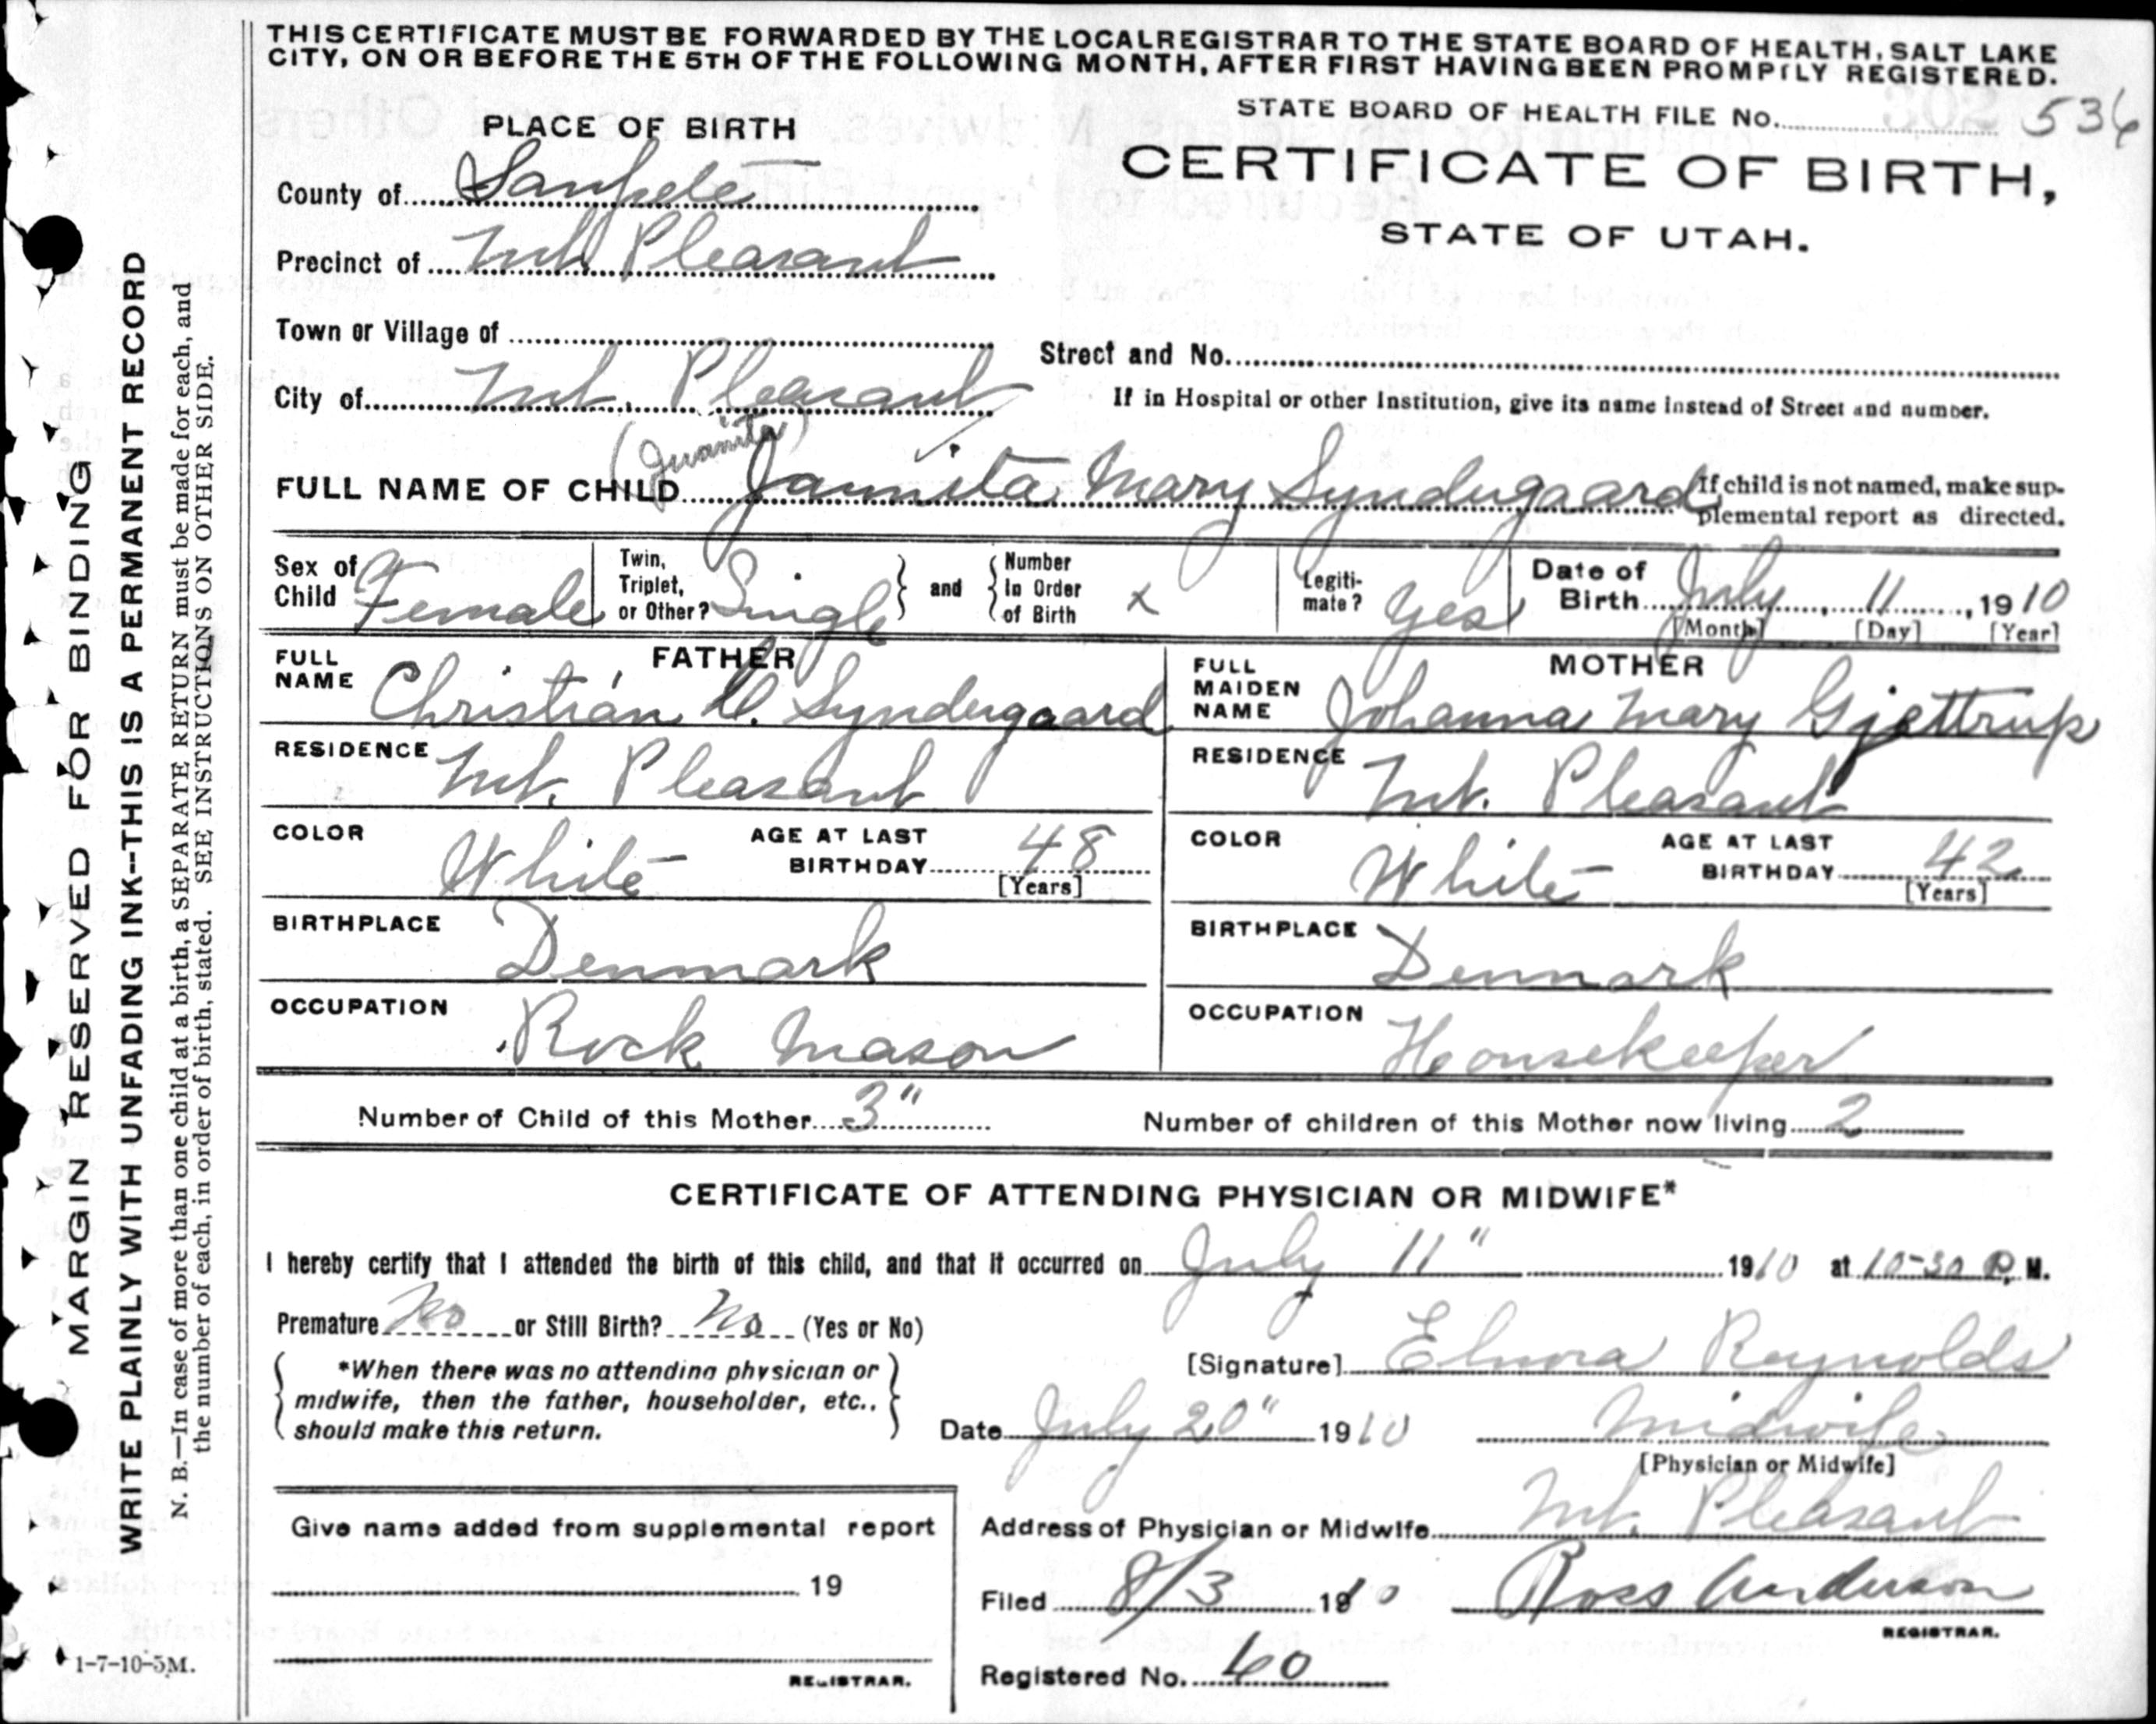 THIS CERTIFICATE MUST BE FORWARDED BY THE LOCAL REGISTRAR TO THE STATE BOARD OF HEALTH, SALT LAKE
CITY, ON OR BEFORE THE 5TH OF THE FOLLOWING MONTH, AFTER FIRST HAVING BEEN PROMPTLY REGISTERED.
STATE BOARD OF HEALTH FILE No. 536
PLACE OF BIRTH
CERTIFICATE OF BIRTH,
STATE OF UTAH.
County of Sanpete
Precinct of Mt. Pleasant
Town or Village of
Street and No.
City of Mt. Pleasant
If in Hospital or other Institution, give its name instead of Street and number.
(Juanita)
FULL NAME OF CHILD Jaunita Mary Syndergaard
If child is not named, make sup-
plemental report as directed.
Sex of Child Female
Twin, Triplet, or Other? Single
and Number In Order of Birth x
Legiti-mate? Yes
Date of Birth July 11, 1910
[Month] [Day] [Year]
FATHER
FULL NAME Christian C. Syndergaard
RESIDENCE Mt. Pleasant
COLOR White AGE AT LAST BIRTHDAY 48
[Years]
BIRTHPLACE Denmark
OCCUPATION Rock Mason
MOTHER
FULL MAIDEN NAME Johanna Mary Gjettrup
RESIDENCE Mt. Pleasant
COLOR White AGE AT LAST BIRTHDAY 42
[Years]
BIRTHPLACE Denmark
OCCUPATION Housekeeper
Number of Child of this Mother 3" Number of children of this Mother now living 2
CERTIFICATE OF ATTENDING PHYSICIAN OR MIDWIFE*
I hereby certify that I attended the birth of this child, and that it occurred on July 11" 1910 at 10-30 P. M.
Premature No or Still Birth? No (Yes or No)
*When there was no attending physician or
midwife, then the father, householder, etc.,
should make this return.
[Signature] Elnora Reynolds
Date July 20" 1910 Midwife
[Physician or Midwife]
Give name added from supplemental report
19
REGISTRAR.
Address of Physician or Midwife Mt. Pleasant
Filed 8/3 1910 Ross Anderson
REGISTRAR.
Registered No. 60
MARGIN RESERVED FOR BINDING
WRITE PLAINLY WITH UNFADING INK--THIS IS A PERMANENT RECORD
N. B.—In case of more than one child at a birth, a SEPARATE RETURN must be made for each, and
the number of each, in order of birth, stated. SEE INSTRUCTIONS ON OTHER SIDE.
1-7-10-5M.